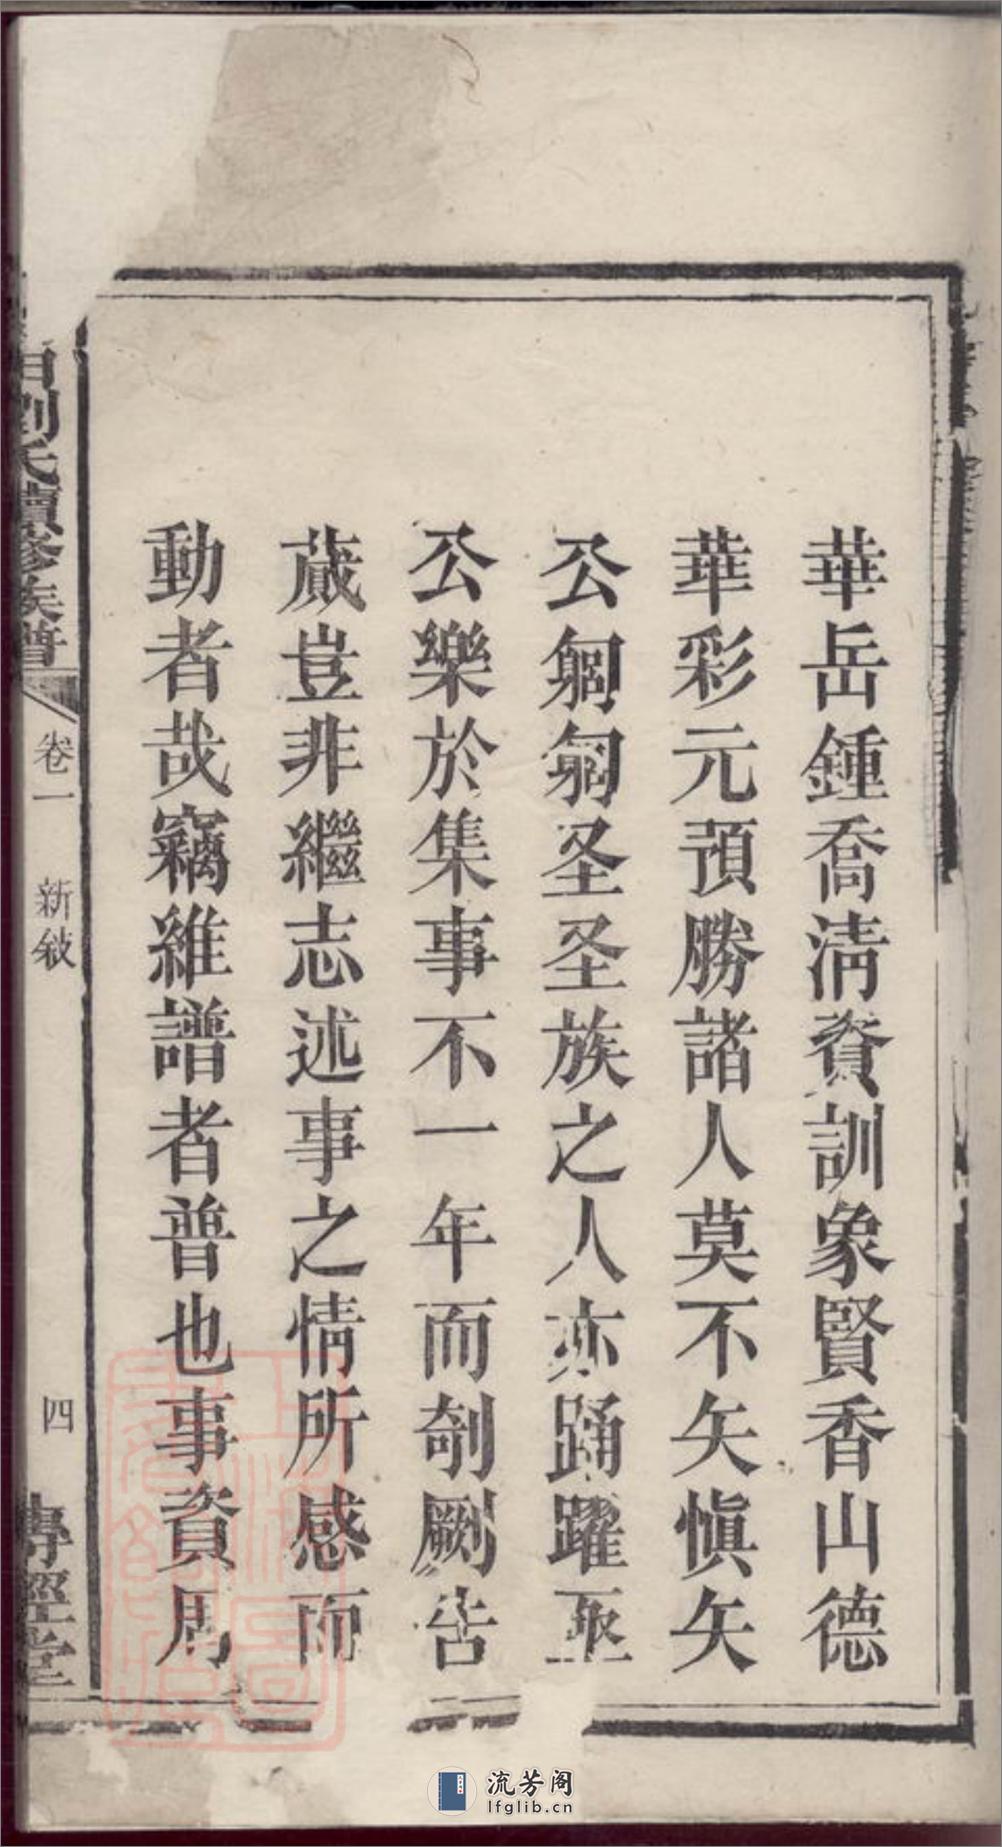 華岳鍾喬淸資訓象賢香山德
華彩元預勝諸人莫不矢愼矢
公躬躬圣圣族之人亦踊躍亟
公樂於集事不一年而剞劂告
蕆豈非繼志述事之情所感而
動者哉竊維譜者普也事資周
劉氏續修族譜
卷一
新敍
四
傳經堂
流芳阁
lfglib.cn